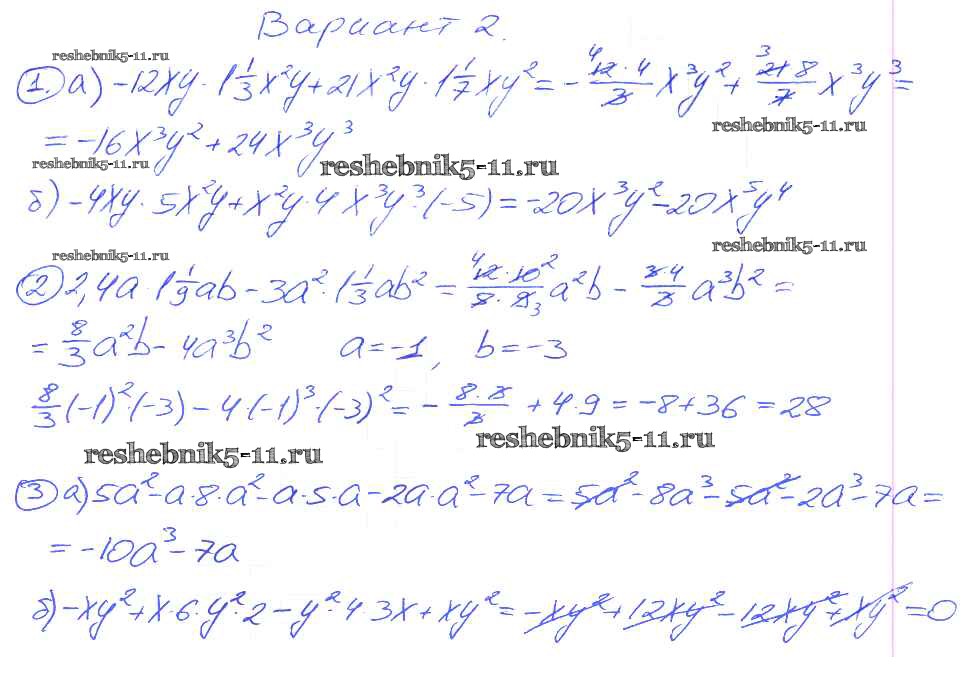 Вариант 2.
reshebnik5-11.ru
1. а) -12xy · 1 1/3 x²y + 21x²y · 1 1/7 xy² = - 12·4/3 x³y² + 21·8/7 x³y³ =
reshebnik5-11.ru
= -16x³y² + 24x³y³
reshebnik5-11.ru
reshebnik5-11.ru
б) -4xy · 5x²y + x²y · 4x³y³ · (-5) = -20x³y² - 20x⁵y⁴
reshebnik5-11.ru
reshebnik5-11.ru
2 2,4a · 1 1/9 ab - 3a² · 1 1/3 ab² = a²b - 3·4/3 a³b² =
= 8/3 a²b - 4a³b² a = -1, b = -3
8/3 (-1)² · (-3) - 4 · (-1)³ · (-3)² = - 8·3/3 + 4·9 = -8 + 36 = 28
reshebnik5-11.ru
reshebnik5-11.ru
3 а) 5a² - a·8·a² - a·5·a - 2a·a² - 7a = 5a² - 8a³ - 5a² - 2a³ - 7a =
= -10a³ - 7a
б) -xy² + x·6·y²·2 - y²·4·3x + xy² = -xy² + 12xy² - 12xy² + xy² = 0